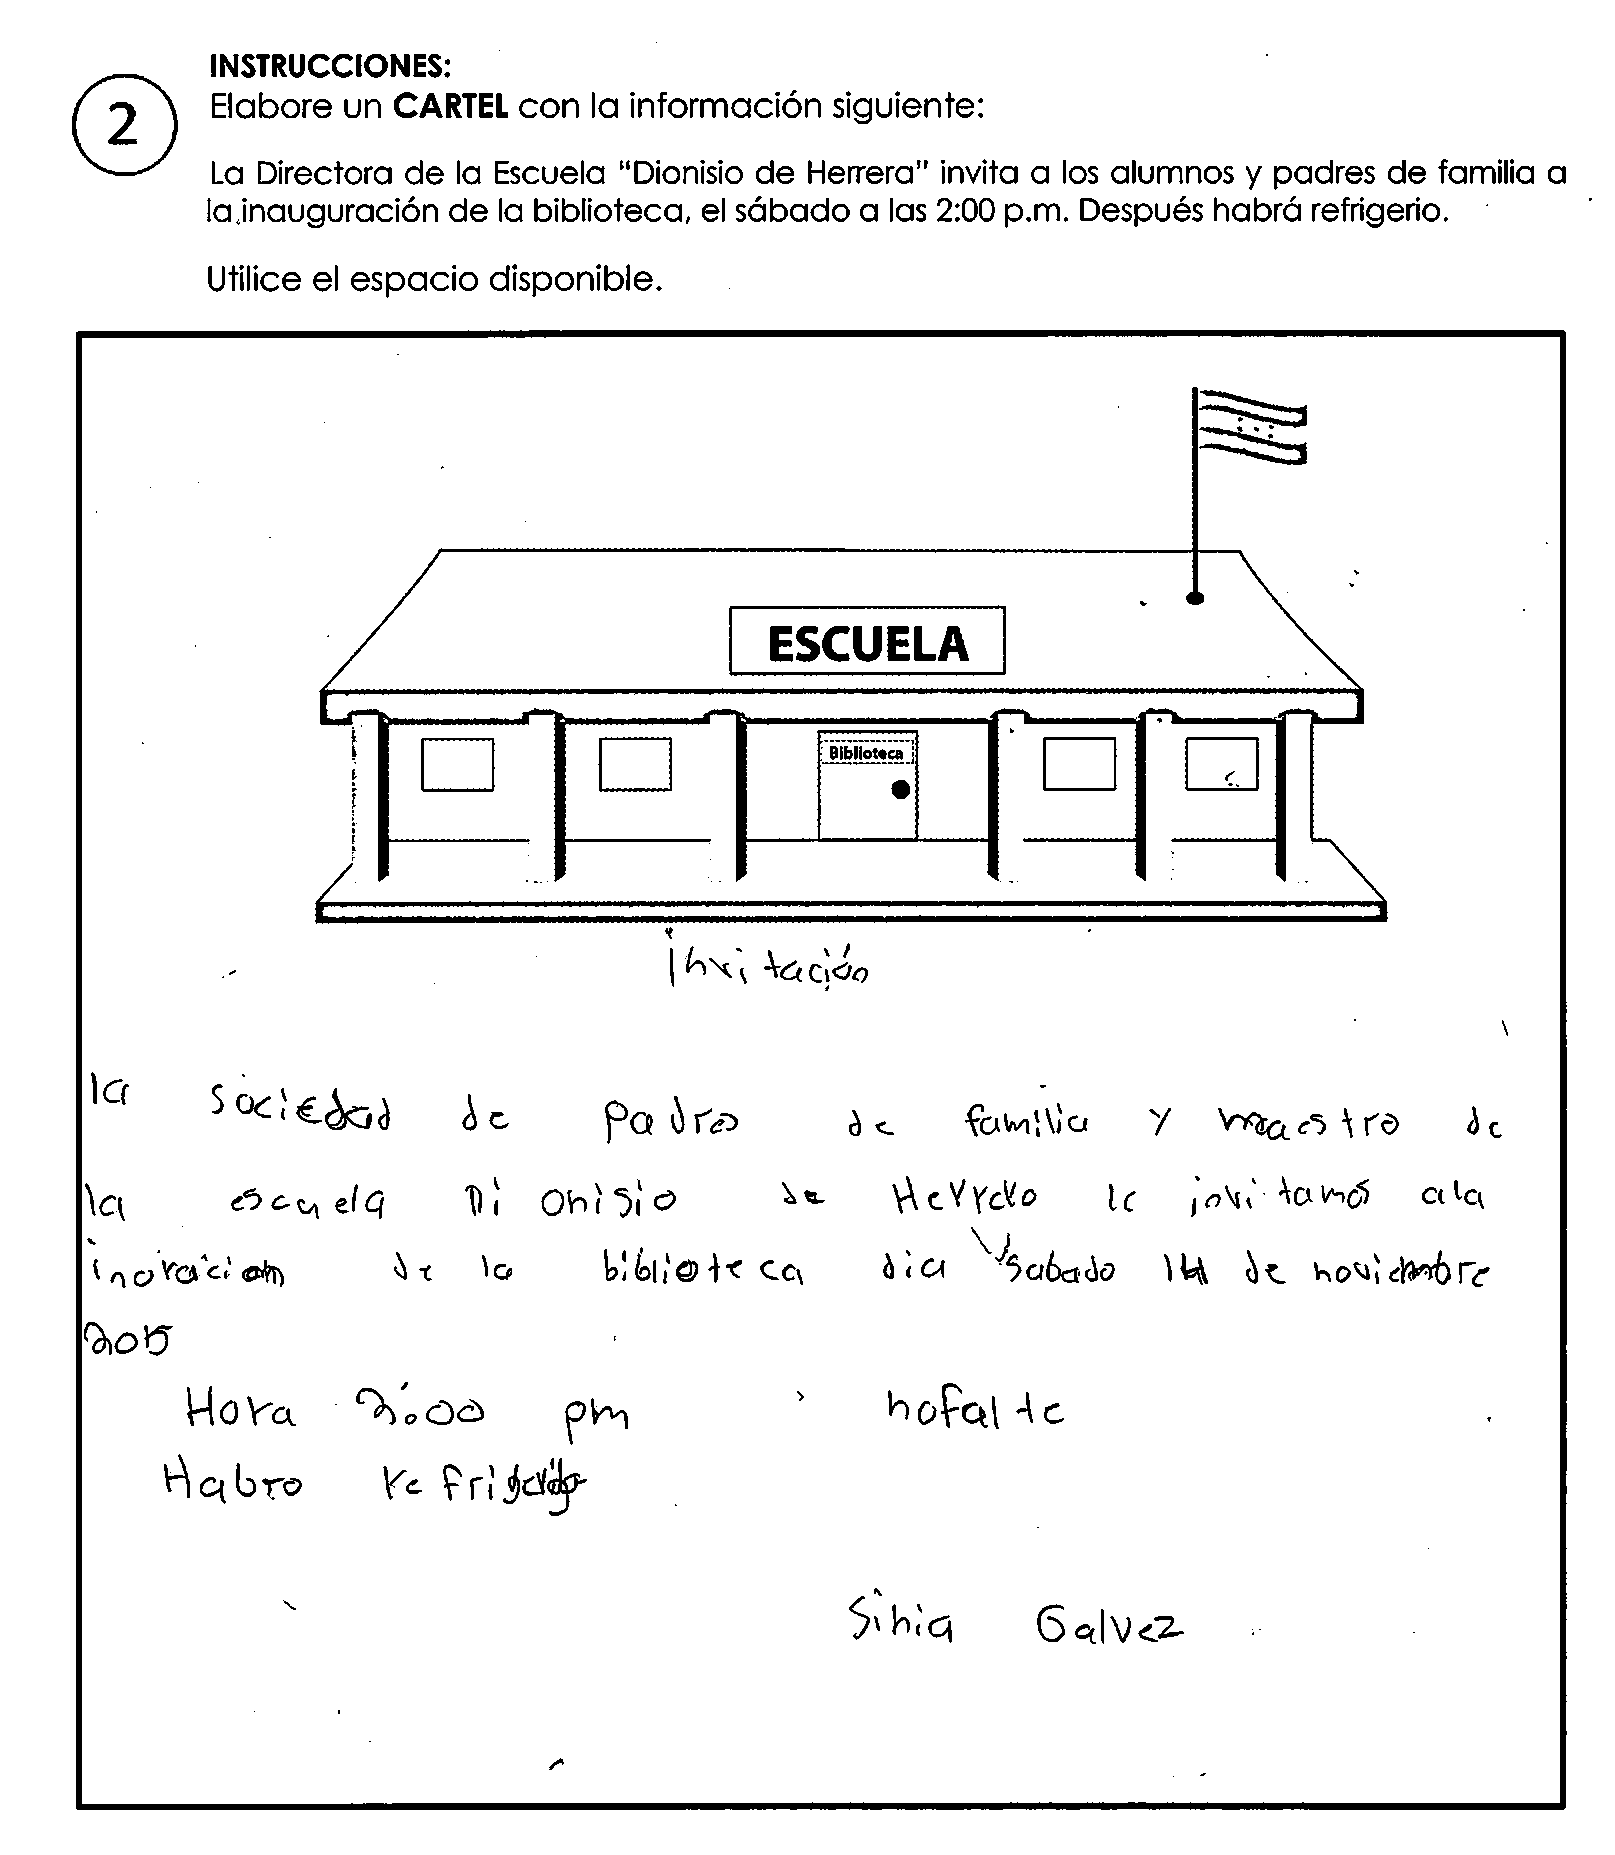 INSTRUCCIONES:
2
Elabore un CARTEL con la información siguiente:
La Directora de la Escuela "Dionisio de Herrera" invita a los alumnos y padres de familia a
la inauguración de la biblioteca, el sábado a las 2:00 p.m. Después habrá refrigerio.
Utilice el espacio disponible.
ESCUELA
Biblioteca
Invitación
la sociedad de padres de familia y maestro de
la escuela Dionisio de Herrera le invitamos a la
inoracion de la biblioteca dia sabado 14 de noviembre
2015
Hora 2:00 pm nofalte
Habro refrigerio
Sinia Galvez